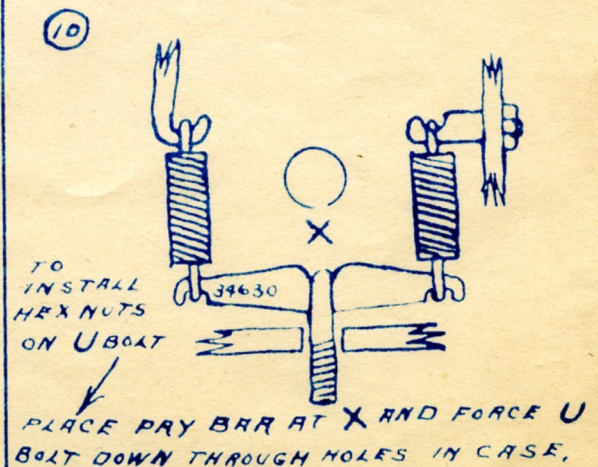 10
X
34630
TO
INSTALL
HEX NUTS
ON U BOLT
PLACE PRY BAR AT X AND FORCE U
BOLT DOWN THROUGH HOLES IN CASE.